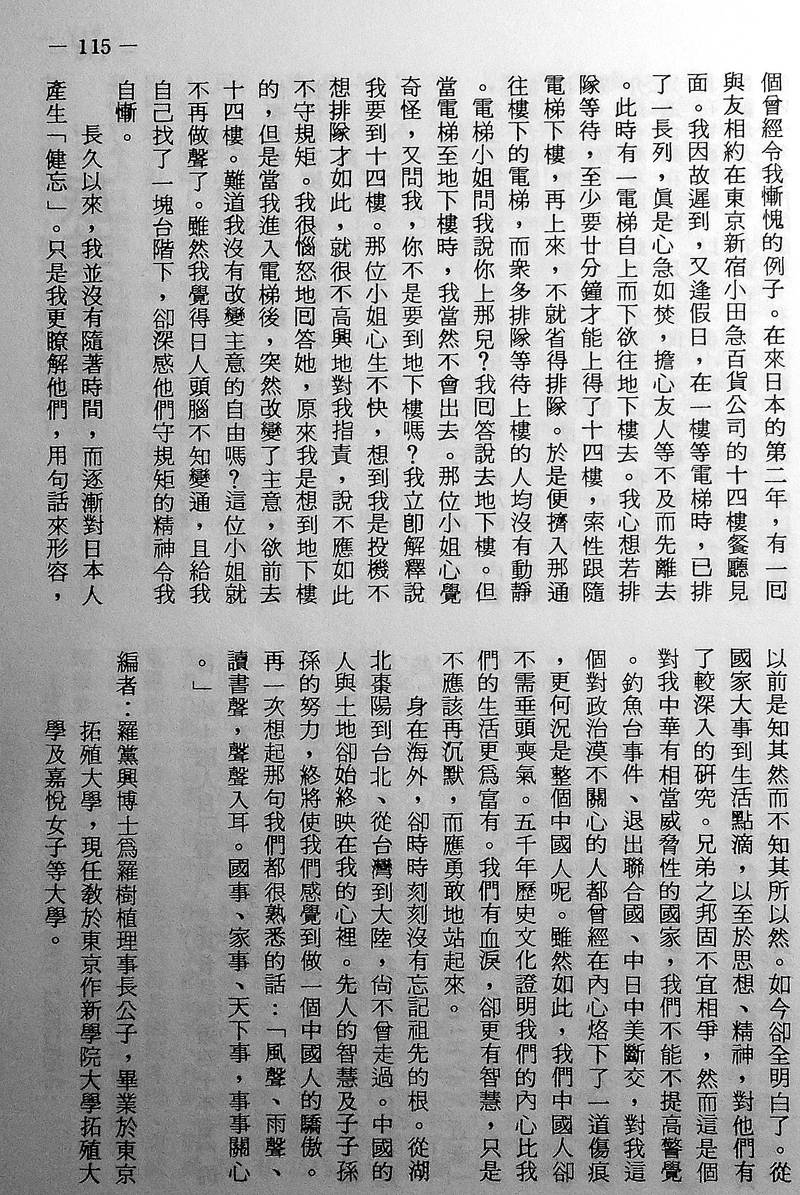 — 115 —
個曾經令我慚愧的例子。在來日本的第二年，有一囘
與友相約在東京新宿小田急百貨公司的十四樓餐廳見
面。我因故遲到，又逢假日，在一樓等電梯時，已排
了一長列，眞是心急如焚，擔心友人等不及而先離去
。此時有一電梯自上而下欲往地下樓去。我心想若排
隊等待，至少要廿分鐘才能上得了十四樓，索性跟隨
電梯下樓，再上來，不就省得排隊。於是便擠入那通
往樓下的電梯，而衆多排隊等待上樓的人均沒有動靜
。電梯小姐問我說你上那兒？我囘答說去地下樓。但
當電梯至地下樓時，我當然不會出去。那位小姐心覺
奇怪，又問我，你不是要到地下樓嗎？我立卽解釋說
我要到十四樓。那位小姐心生不快，想到我是投機不
想排隊才如此，就很不高興地對我指責，說不應如此
不守規矩。我很惱怒地囘答她，原來我是想到地下樓
的，但是當我進入電梯後，突然改變了主意，欲前去
十四樓。難道我沒有改變主意的自由嗎？這位小姐就
不再做聲了。雖然我覺得日人頭腦不知變通，且給我
自己找了一塊台階下，卻深感他們守規矩的精神令我
自慚。
長久以來，我並沒有隨著時間，而逐漸對日本人
產生「健忘」。只是我更瞭解他們，用句話來形容，
以前是知其然而不知其所以然。如今卻全明白了。從
國家大事到生活點滴，以至於思想、精神，對他們有
了較深入的硏究。兄弟之邦固不宜相爭，然而這是個
對我中華有相當威脅性的國家，我們不能不提高警覺
。釣魚台事件、退出聯合國、中日中美斷交，對我這
個對政治漠不關心的人都曾經在內心烙下了一道傷痕
，更何況是整個中國人呢。雖然如此，我們中國人卻
不需垂頭喪氣。五千年歷史文化證明我們的內心比我
們的生活更爲富有。我們有血淚，卻更有智慧，只是
不應該再沉默，而應勇敢地站起來。
身在海外，卻時時刻刻沒有忘記祖先的根。從湖
北棗陽到台北、從台灣到大陸，尙不曾走過。中國的
人與土地卻始終映在我的心裡。先人的智慧及子子孫
孫的努力，終將使我們感覺到做一個中國人的驕傲。
再一次想起那句我們都很熟悉的話：「風聲、雨聲、
讀書聲，聲聲入耳。國事、家事、天下事，事事關心
。」
編者：羅黨興博士爲羅樹植理事長公子，畢業於東京
拓殖大學，現任敎於東京作新學院大學拓殖大
學及嘉悅女子等大學。